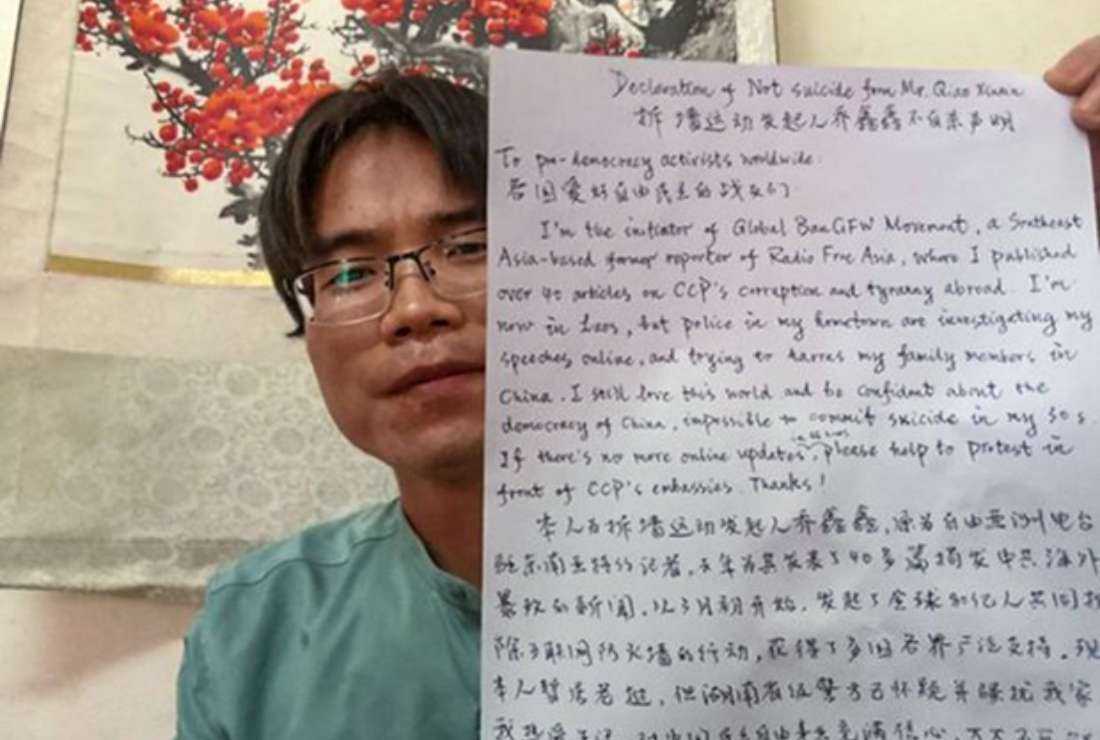 Declaration of Not suicide from Mr. Qiao Xinxin
拆墙运动发起人乔鑫鑫不自杀声明
To pro-democracy activists worldwide:
各国爱好自由民主的战友们
I'm the initiator of Global BanGFW Movement, a Southeast
Asia-based former reporter of Radio Free Asia, where I published
over 40 articles on CCP's corruption and tyranny abroad. I'm
now in Laos, but police in my hometown are investigating my
speeches online, and trying to harras my family members in
China. I still love this world and be confident about the
democracy of China, impossible to commit suicide in my 30s.
If there's no more online updates, please help to protest in
front of CCP's embassies. Thanks!
本人为拆墙运动发起人乔鑫鑫,原为自由亚洲电台
驻东南亚特约记者,去年为其发表了40多篇揭发中共海外
暴政的新闻,从3月初开始,发起了全球80亿人共同拆
除互联网防火墙的行动,获得了多国各界广泛支持。现
本人暂居老挝,但湖南省级警方已怀疑并骚扰我家
我热爱生活,对中国民主自由事业充满信心,